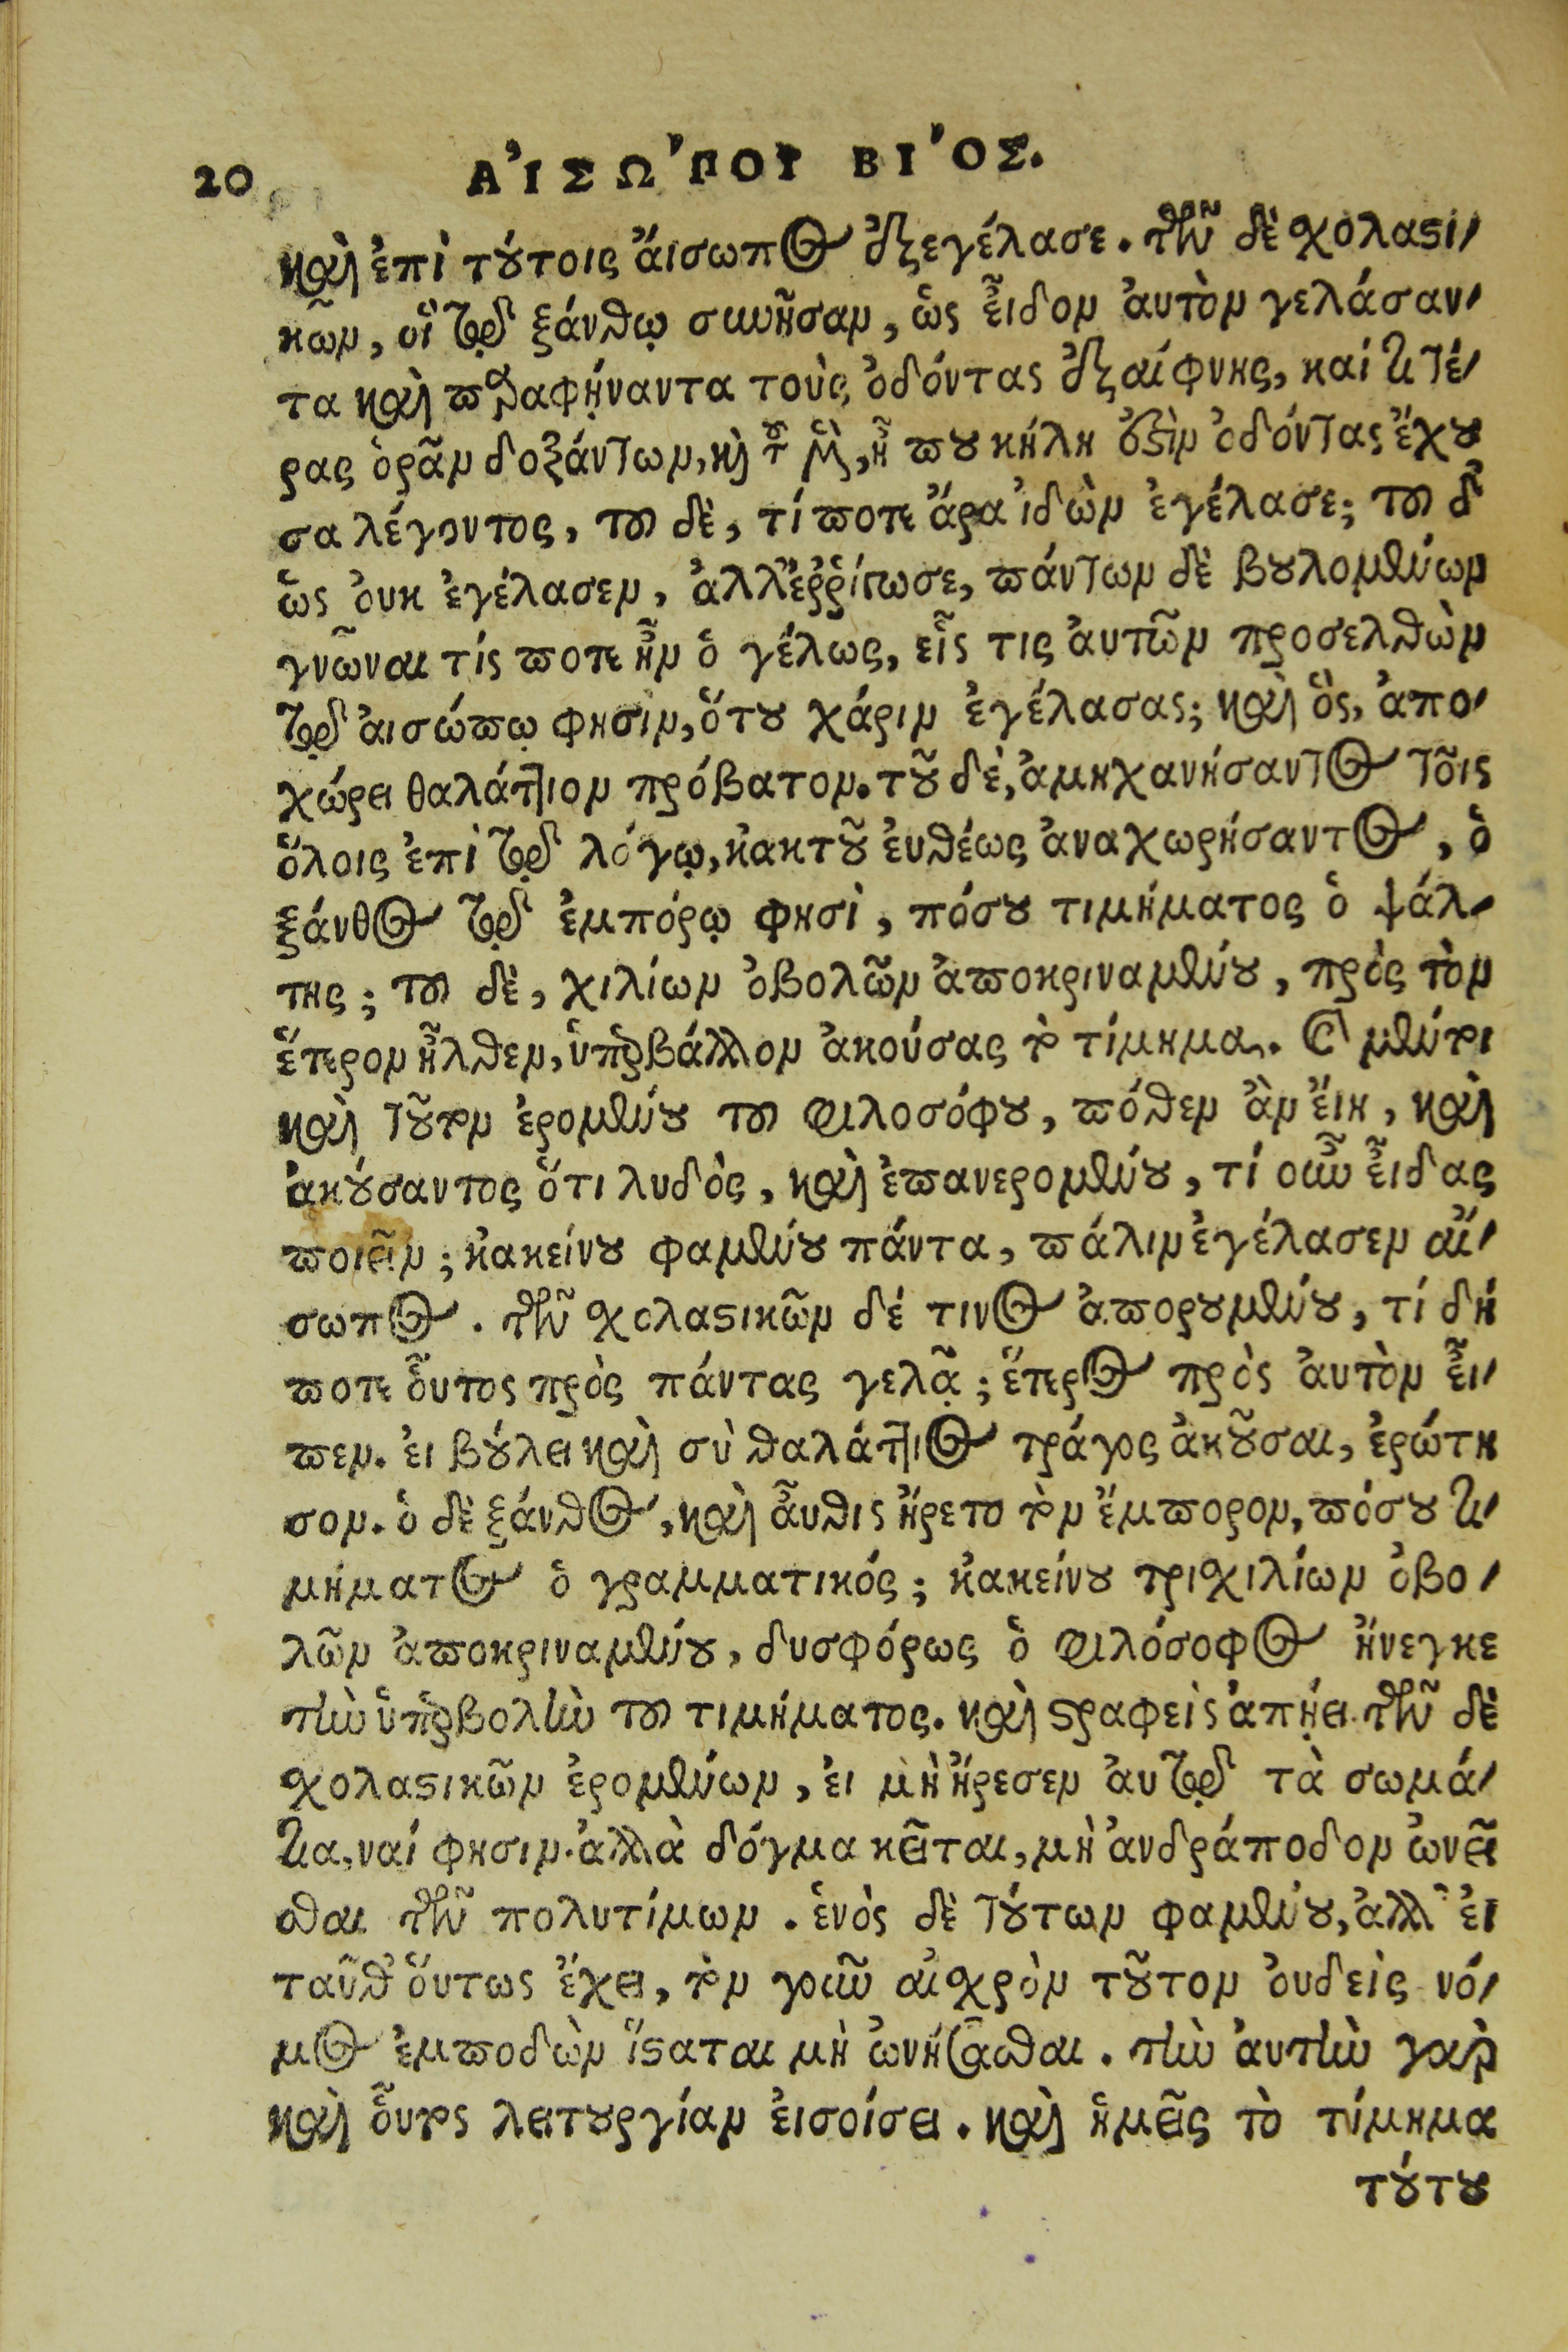 20 ΑἸΣΩ'ΠΟΥ ΒΙ'ΟΣ.
καὶ ἐπὶ τούτοις ἄισωπος ἐξεγέλασε. τῶν δὲ σχολαστι-
κῶν, οἳ τῷ ξάνθῳ συνῆσαν, ὡς εἶδον ἀυτὸν γελάσαν-
τα καὶ παραφήναντα τοὺς ὀδόντας ἐξαίφνης, καί τι τέ-
ρας ὁρᾶν δοξάντων, καὶ τοῦ μὲν, ἦ που κήλη ἐστὶν ὀδόντας ἔχου
σα λέγοντος, τοῦ δὲ, τί ποτε ἄρα ἰδὼν ἐγέλασε; τοῦ δ'
ὡς ὀυκ ἐγέλασεν, ἀλλ' ἐῤῥίγωσε, πάντων δὲ βουλομένων
γνῶναι τίς ποτε ἦν ὁ γέλως, εἷς τις ἀυτῶν προσελθὼν
τῷ ἀισώπῳ φησὶν, ὅτου χάριν ἐγέλασας; καὶ ὃς, ἀπο-
χώρει θαλάττιον πρόβατον. τοῦ δὲ, ἀμηχανήσαντος τοῖς
ὅλοις ἐπὶ τῷ λόγῳ, κἀκ τοῦ ἐυθέως ἀναχωρήσαντος, ὁ
ξάνθος τῷ ἐμπόρῳ φησὶ, πόσου τιμήματος ὁ ψάλ-
της; τοῦ δὲ, χιλίων ὀβολῶν ἀποκριναμένου, πρὸς τὸν
ἕτερον ἦλθεν, ὑπερβάλλον ἀκούσας τὸ τίμημα. μέντοι
καὶ τοῦτον ἐρομένου τοῦ φιλοσόφου, πόθεν ἂν ἔιη, καὶ
ἀκούσαντος ὅτι λυδὸς, καὶ ἐπανερομένου, τί οὖν εἶδας
ποιεῖν; κἀκείνου φαμένου πάντα, πάλιν ἐγέλασεν αἴ-
σωπος. τῶν σχολαστικῶν δέ τινος ἀπορουμένου, τί δή
ποτε οὗτος πρὸς πάντας γελᾷ; ἕτερος πρὸς ἀυτὸν εἶ-
πεν. ἐι βούλει καὶ σὺ θαλάττιος τράγος ἀκοῦσαι, ἐρώτη
σον. ὁ δὲ ξάνθος, καὶ αὖθις ἤρετο τὸν ἔμπορον, πόσου τι-
μήματος ὁ γραμματικός; κἀκείνου τριχιλίων ὀβο-
λῶν ἀποκριναμένου, δυσφόρως ὁ φιλόσοφος ἤνεγκε
τὴν ὑπερβολὴν τοῦ τιμήματος. καὶ στραφεὶς ἀπῄει. τῶν δὲ
σχολαστικῶν ἐρομένων, ἐι μὴ ἤρεσεν ἀυτῷ τὰ σωμά-
τια, ναί φησιν. ἀλλὰ δόγμα κεῖται, μὴ ἀνδράποδον ὠνεῖ
σθαι τῶν πολυτίμων. ἑνὸς δὲ τούτων φαμένου, ἀλλ' ἐι
ταῦθ' ὅυτως ἔχει, τὸν γοῦν αἰσχρὸν τοῦτον ὀυδεὶς νό-
μος ἐμποδὼν ἵσταται μὴ ὠνήσασθαι. τὴν ἀυτὴν γὰρ
καὶ οὗτος λειτουργίαν ἐισοίσει. καὶ ἡμεῖς τὸ τίμημα
τούτου